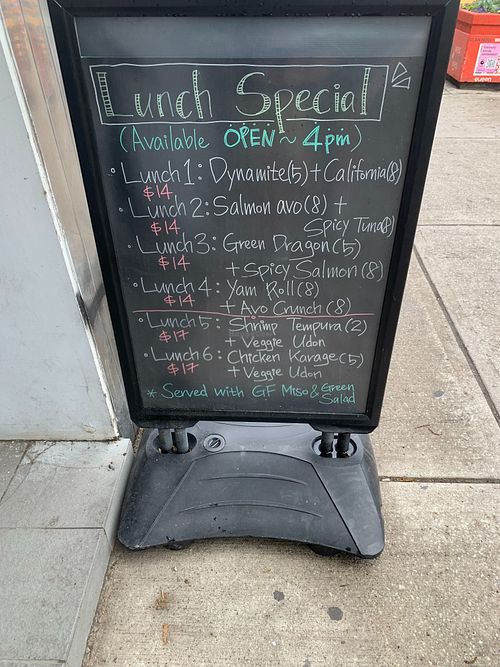 Lunch Special
(Available OPEN ~ 4pm)
• Lunch 1: Dynamite(5) + California(8)
$14
• Lunch 2: Salmon avo(8) +
$14 Spicy Tuna(8)
• Lunch 3: Green Dragon(5)
$14 + Spicy Salmon(8)
• Lunch 4: Yam Roll(8)
$14 + Avo Crunch(8)
• Lunch 5: Shrimp Tempura(2)
$17 + Veggie Udon
• Lunch 6: Chicken Karage(5)
$17 + Veggie Udon
* Served with GF Miso & Green
Salad